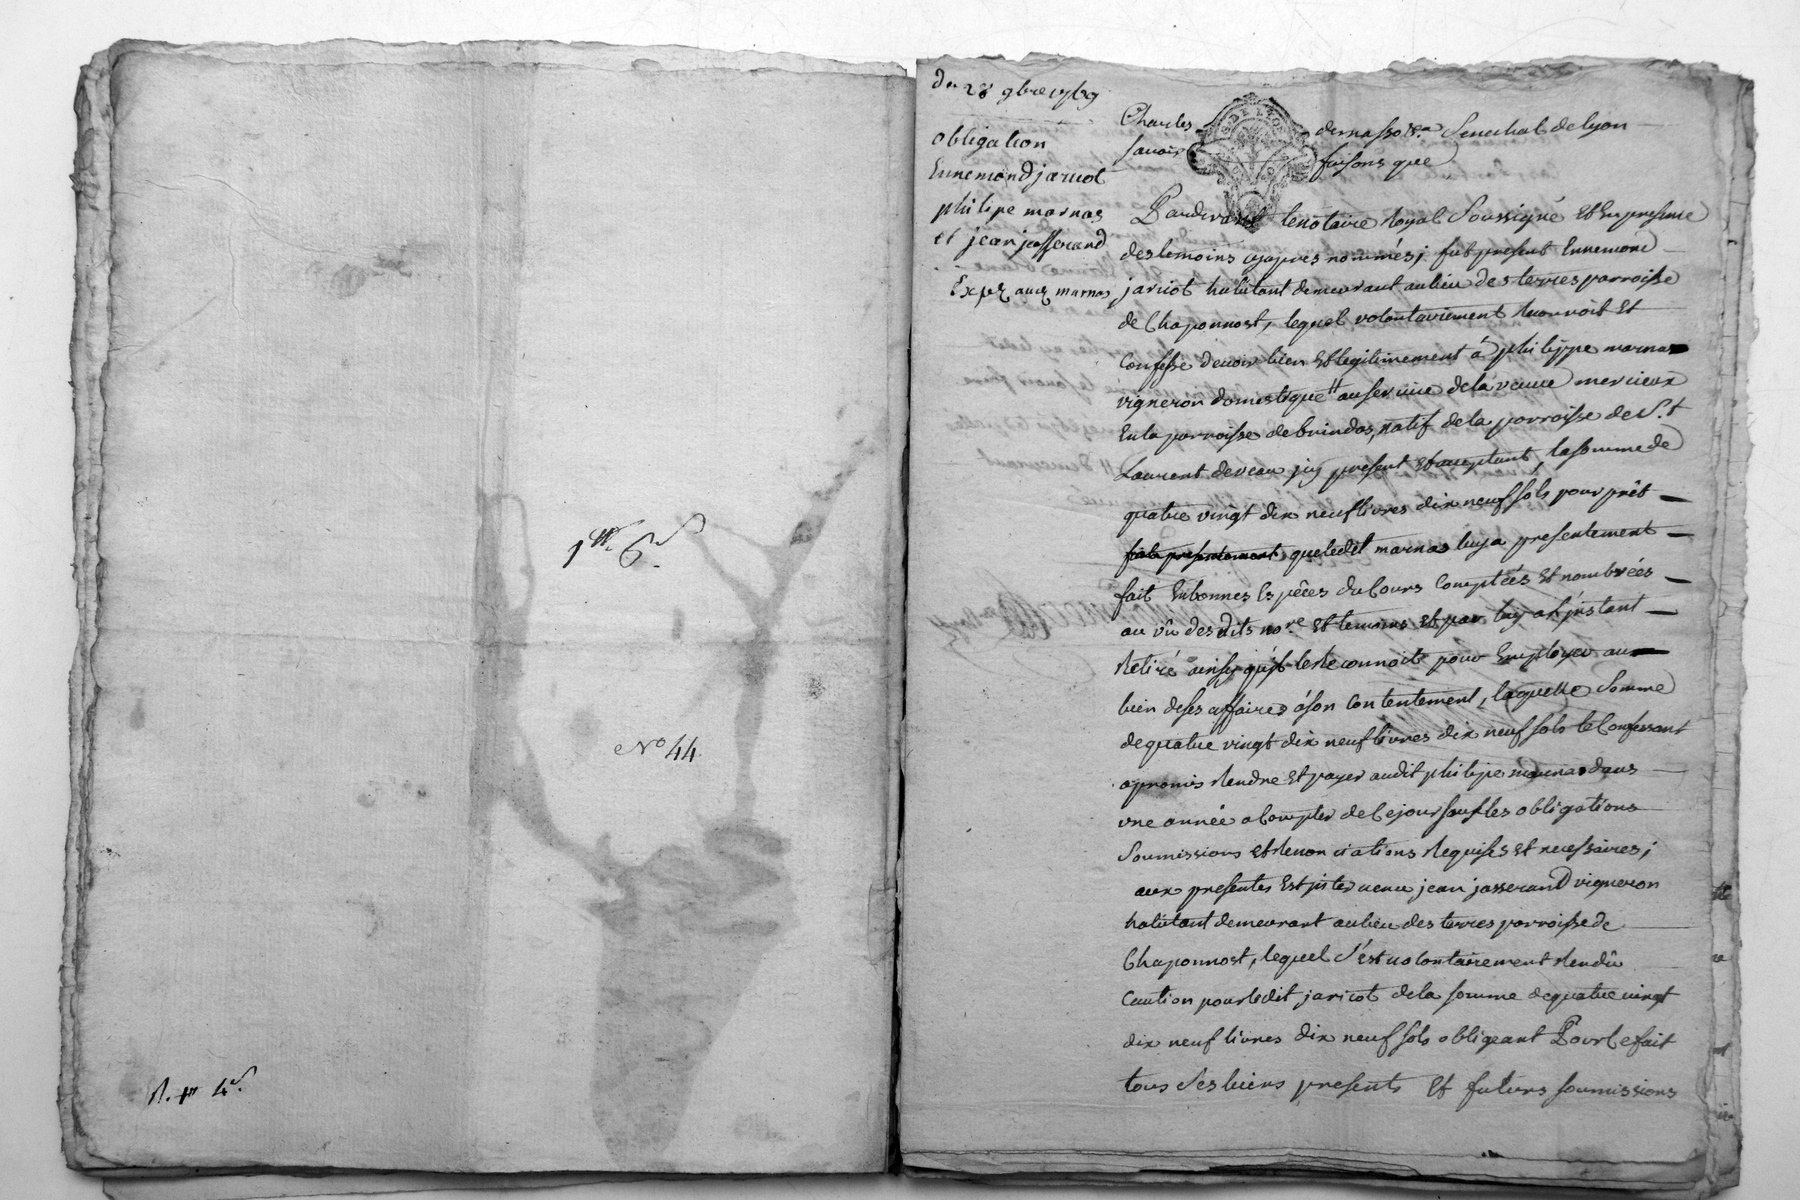 1tt 6s
No 44
4s
du 28 9bre 1769
obligation
Ennemond jaricot
philipe marnas
et jean jasserand
Expé aux marnas
Charles demasso &a Senechal de lyon
savoir faisons que
G. DE LYON
Pardevant le notaire Royal Soussigné Et En presence
des temoins cy apres nommés; fut present Ennemond
jaricot habitant demeurant au lieu des terres parroisse
de Chaponnost, lequel volontairement Reconnoit Et
Confesse devoir bien Et legitimement à philippe marnas
vigneron domestique au service de la veuve mercieux
En la parroisse de brindas, natif de la parroisse de St
Laurent de veau, jcy present et acceptant, la somme de
quatre vingt dix neuf livres dix neuf sols pour prêt
fait presentement que ledit marnas luy a presentement
fait En bonnes Espêces du Cours Comptées Et nombrées
au vû des dits nore Et temoins Et par luy a l'jnstant
Retiré ainsy qu'jl le Reconnoit pour Employer au
bien de ses affaires à son Contentement, laquelle Somme
de quatre vingt dix neuf livres dix neuf sols le Confessant
a promis Rendre Et payer audit philipe marnas dans
une année a Compter de Ce jour sous les obligations
Soumissions et Renonciations Requises et necessaires;
aux presentes Est jntervenu jean jasserand vigneron
habitant demeurant au lieu des terres parroisse de
Chaponnost, lequel s'est volontairement Rendû
Caution pour ledit jaricot de la somme de quatre vingt
dix neuf livres dix neuf sols obligeant Pour Ce fait
tous Ses biens presents Et futurs soumissions